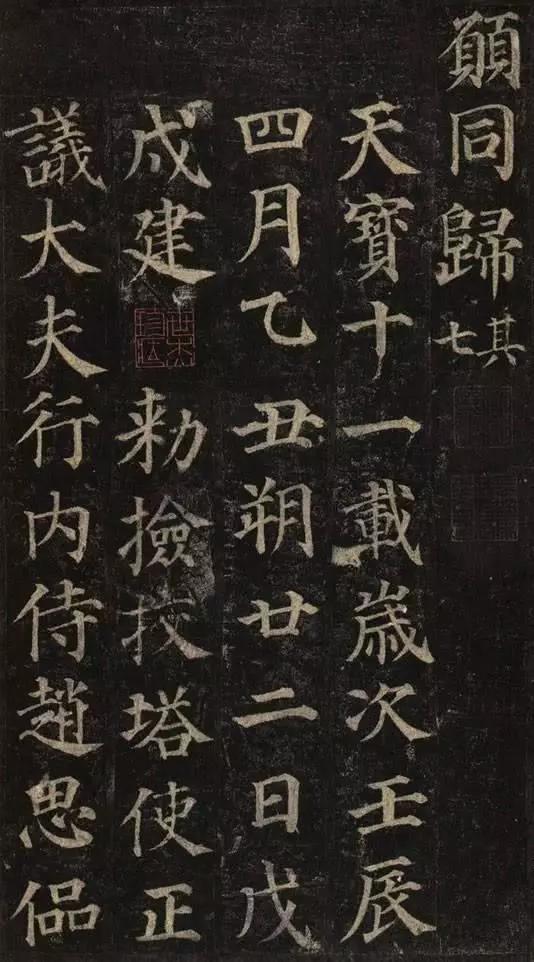 願同歸其七
天寶十一載歲次壬辰
四月乙丑朔廿二日戊
戌建 勑撿挍塔使正
議大夫行内侍趙思侃